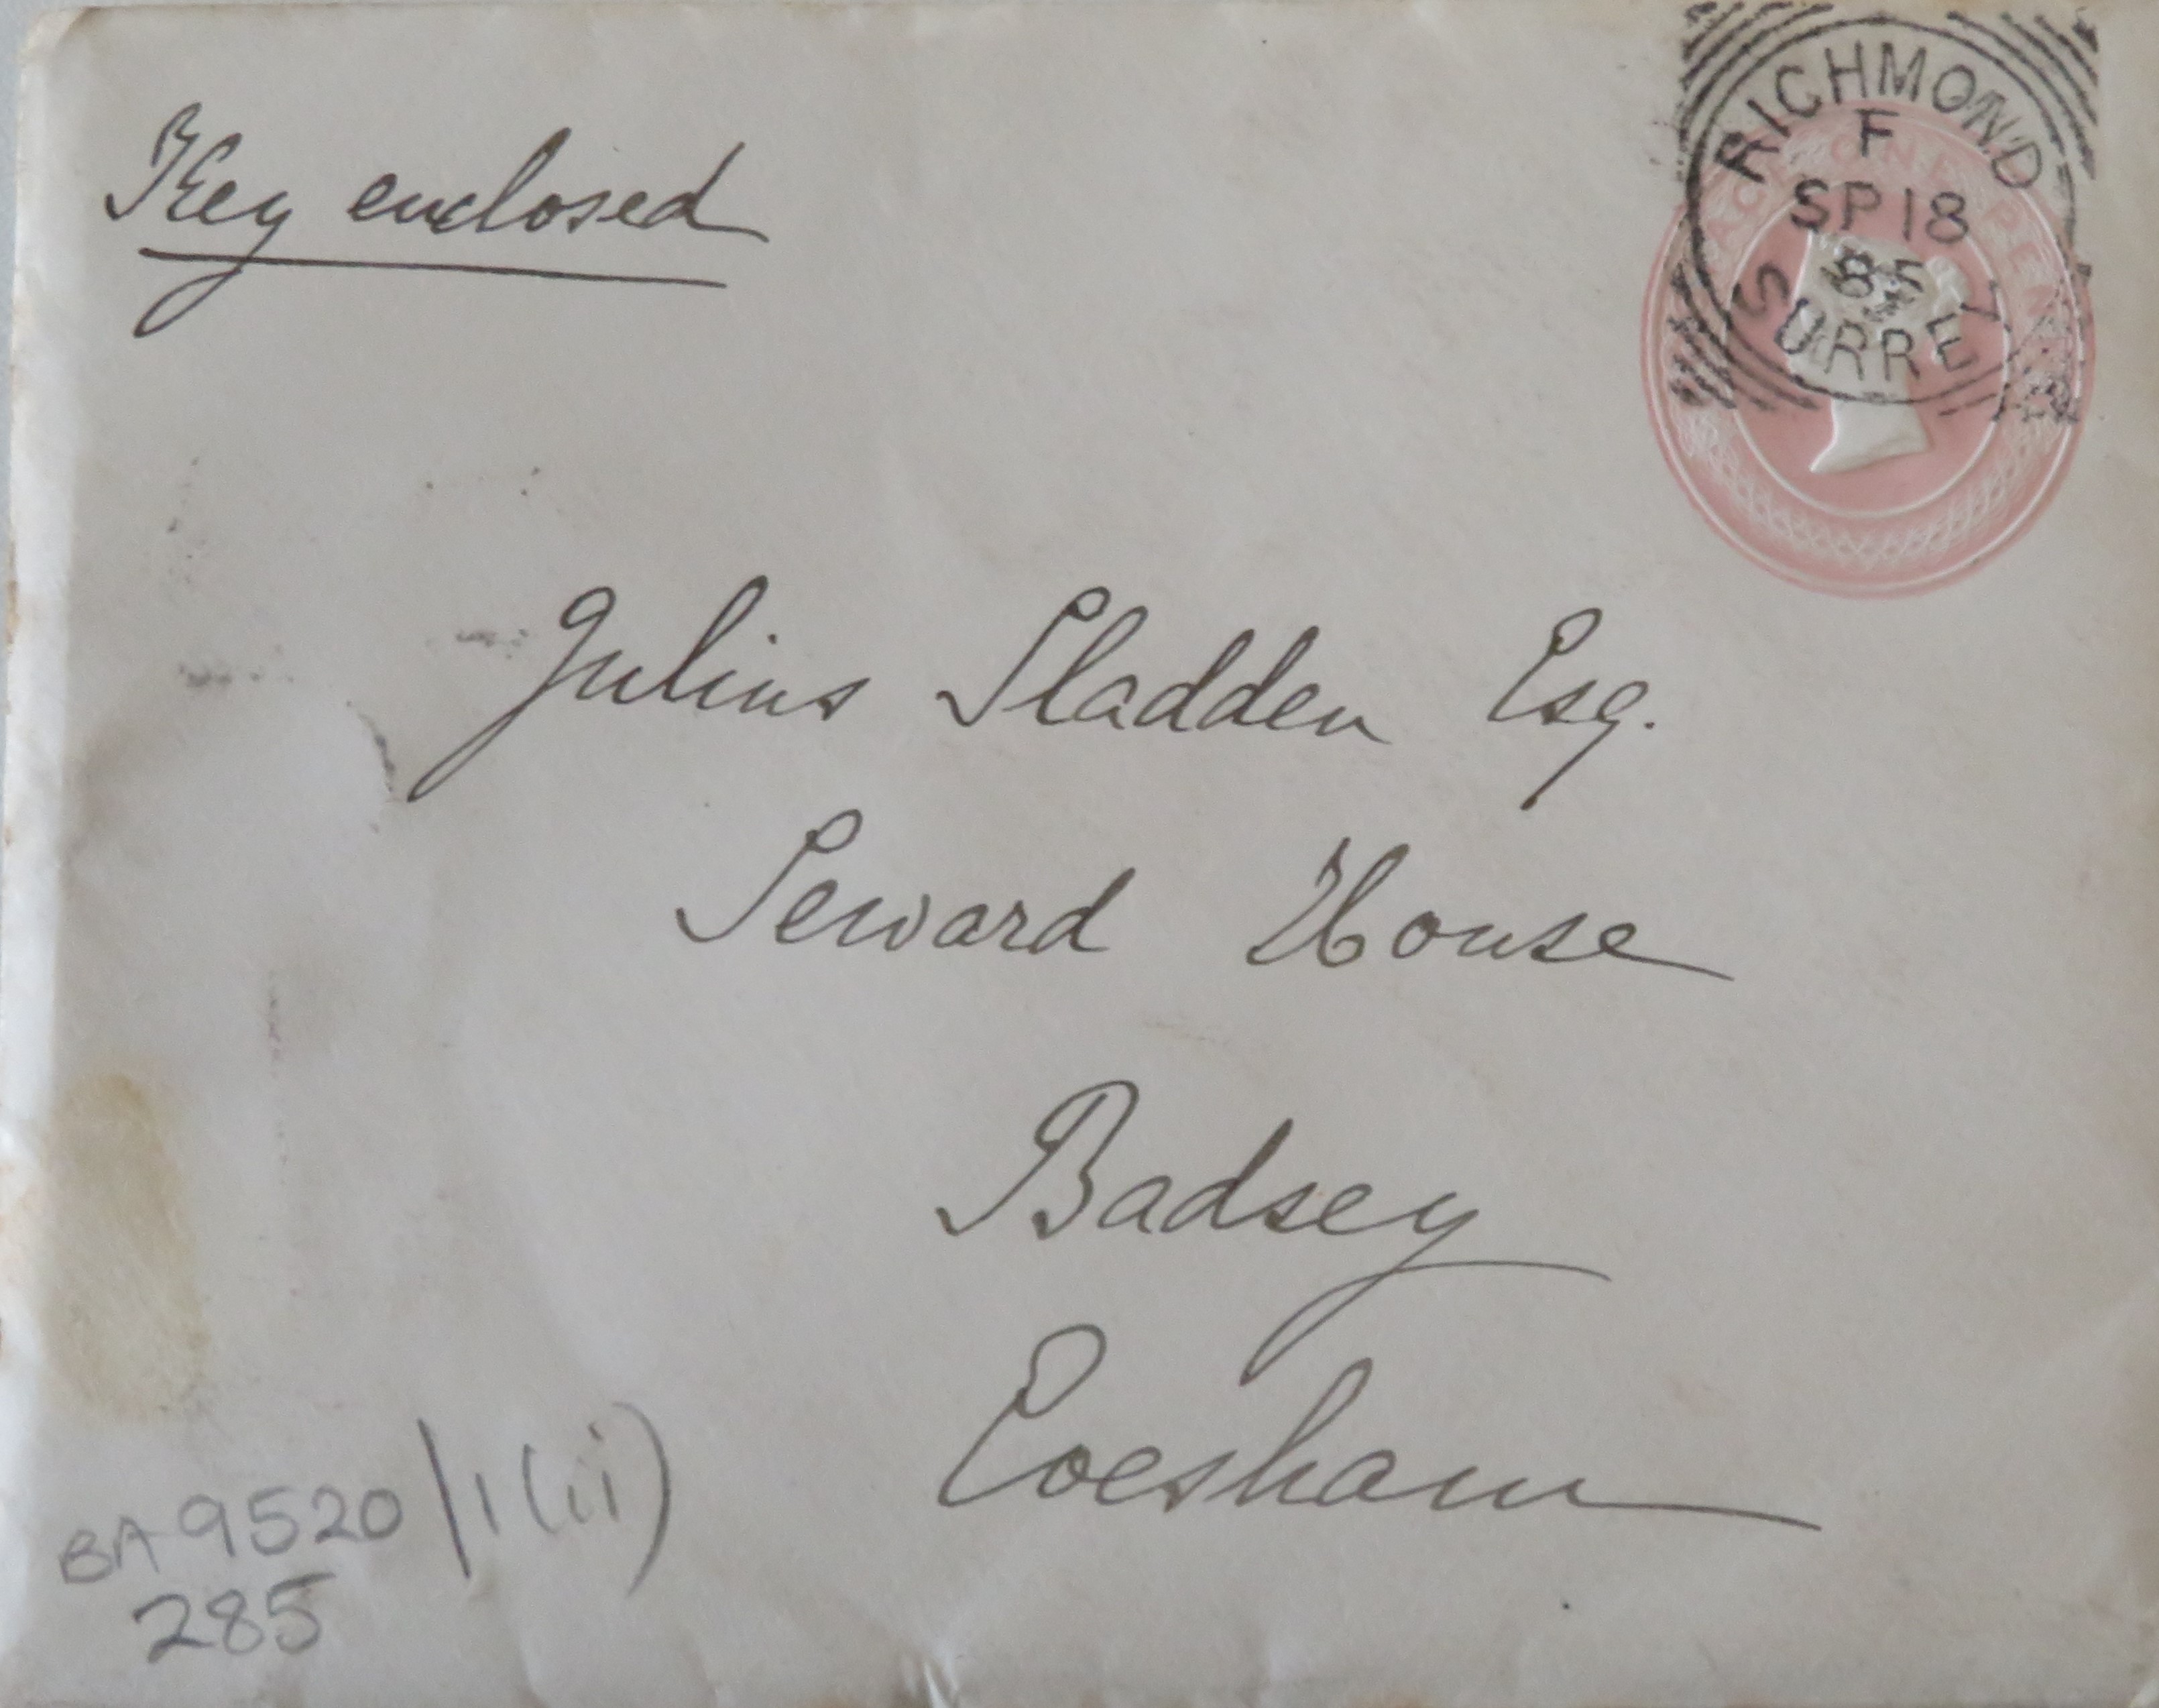 Key enclosed
RICHMOND
F
SP 18
85
SURREY
Julius Sladden Esq.
Seward House
Badsey
Evesham
BA 9520/1(ii)
285